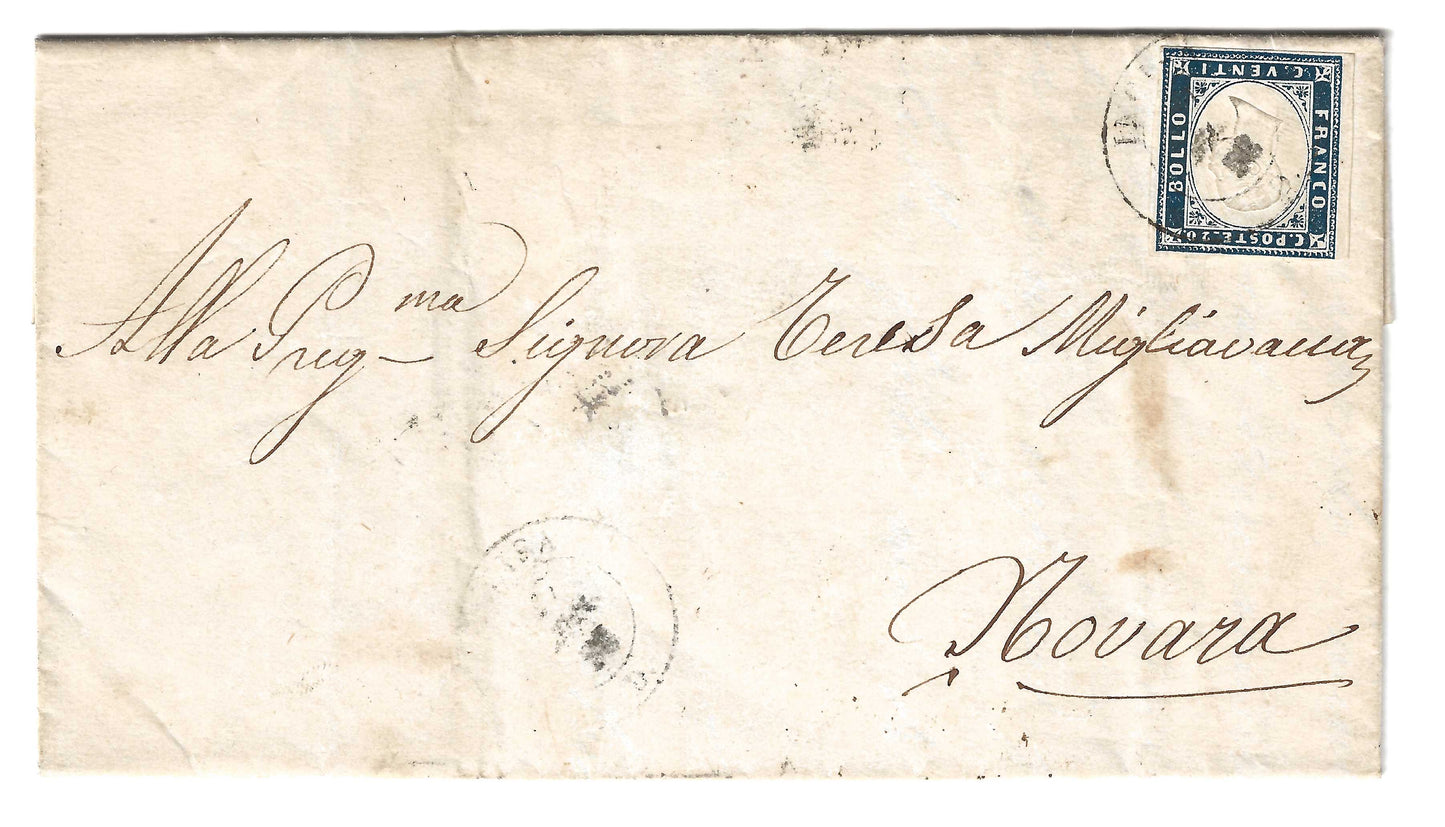 C. VENTI
BOLLO
FRANCO
C. POSTE. 20
Alla Preg^ma Signora Teresa Migliavacca
Novara